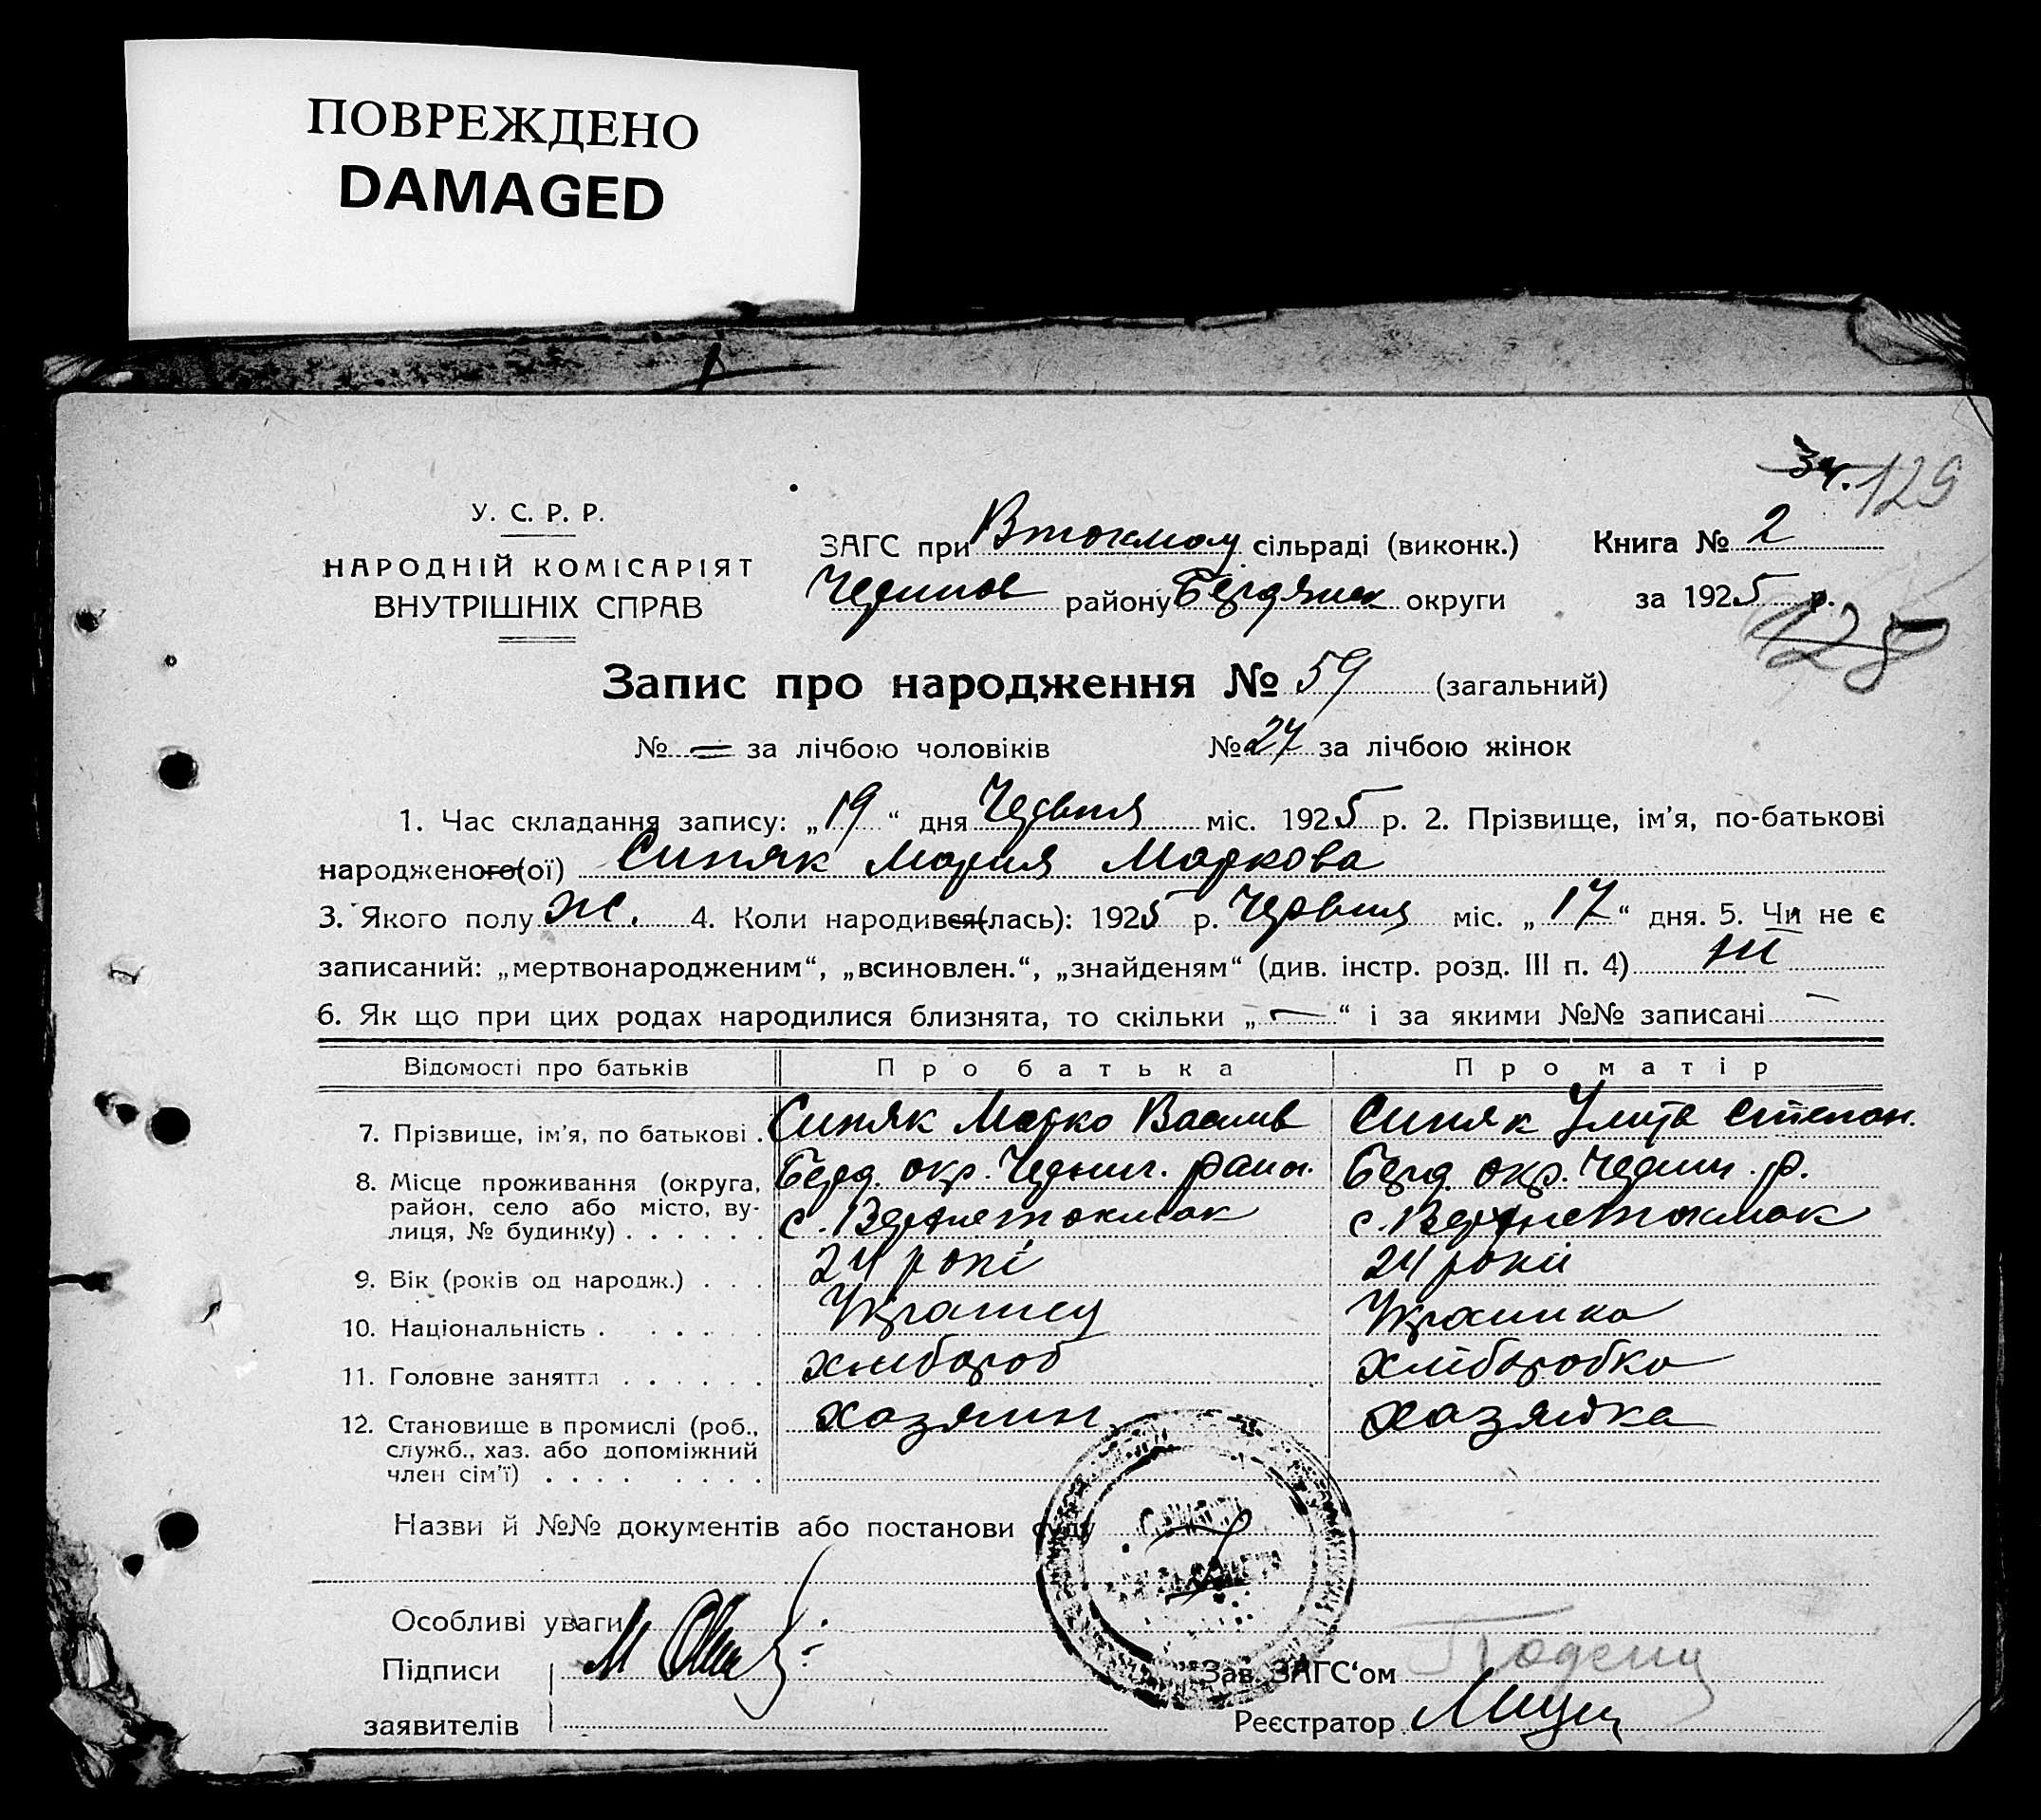 ПОВРЕЖДЕНО
DAMAGED
34. 129
У. С. Р. Р.
НАРОДНІЙ КОМІСАРІЯТ
ВНУТРІШНІХ СПРАВ
ЗАГС при Втокмац. сільраді (виконк.) Книга № 2
району Бердянск округи за 1925 р.
128
Запис про народження № 59 (загальний)
№ — за лічбою чоловіків № 27 за лічбою жінок
1. Час складання запису: „19“ дня Червня міс. 1925 р. 2. Прізвище, ім'я, по-батькові
народженого(ої) Синяк Мария Маркова
3. Якого полу Ж. 4. Коли народився(лась): 1925 р. Червня міс. „17“ дня. 5. Чи не є
записаний: „мертвонародженим“, „всиновлен.“, „знайденям“ (див. інстр. розд. III п. 4) ні
6. Як що при цих родах народилися близнята, то скільки „—“ і за якими №№ записані —
Відомості про батьків Про батька Про матір
7. Прізвище, ім'я, по батькові . Синяк Марко Васильв Синяк Улита Степан.
8. Місце проживання (округа, Берд. окр. Черниг. раион. Берд. окр. Черниг. р.
район, село або місто, ву-
лиця, № будинку) . . . . . . с. Верхнетокмак с. Верхнетокмак
9. Вік (років од народж.) . . . 24 рокі 24 роки
10. Національність . . . . . Украинец Украинка
11. Головне заняття . . . . . . хлибороб хлиборобка
12. Становище в промислі (роб., хазяин хазяйка
служб., хаз. або допоміжний
член сім'ї) . . . . . . . .
Назви й №№ документів або постанови суду
Особливі уваги
Підписи
Зав. ЗАГС‘ом
заявителів
Реєстратор